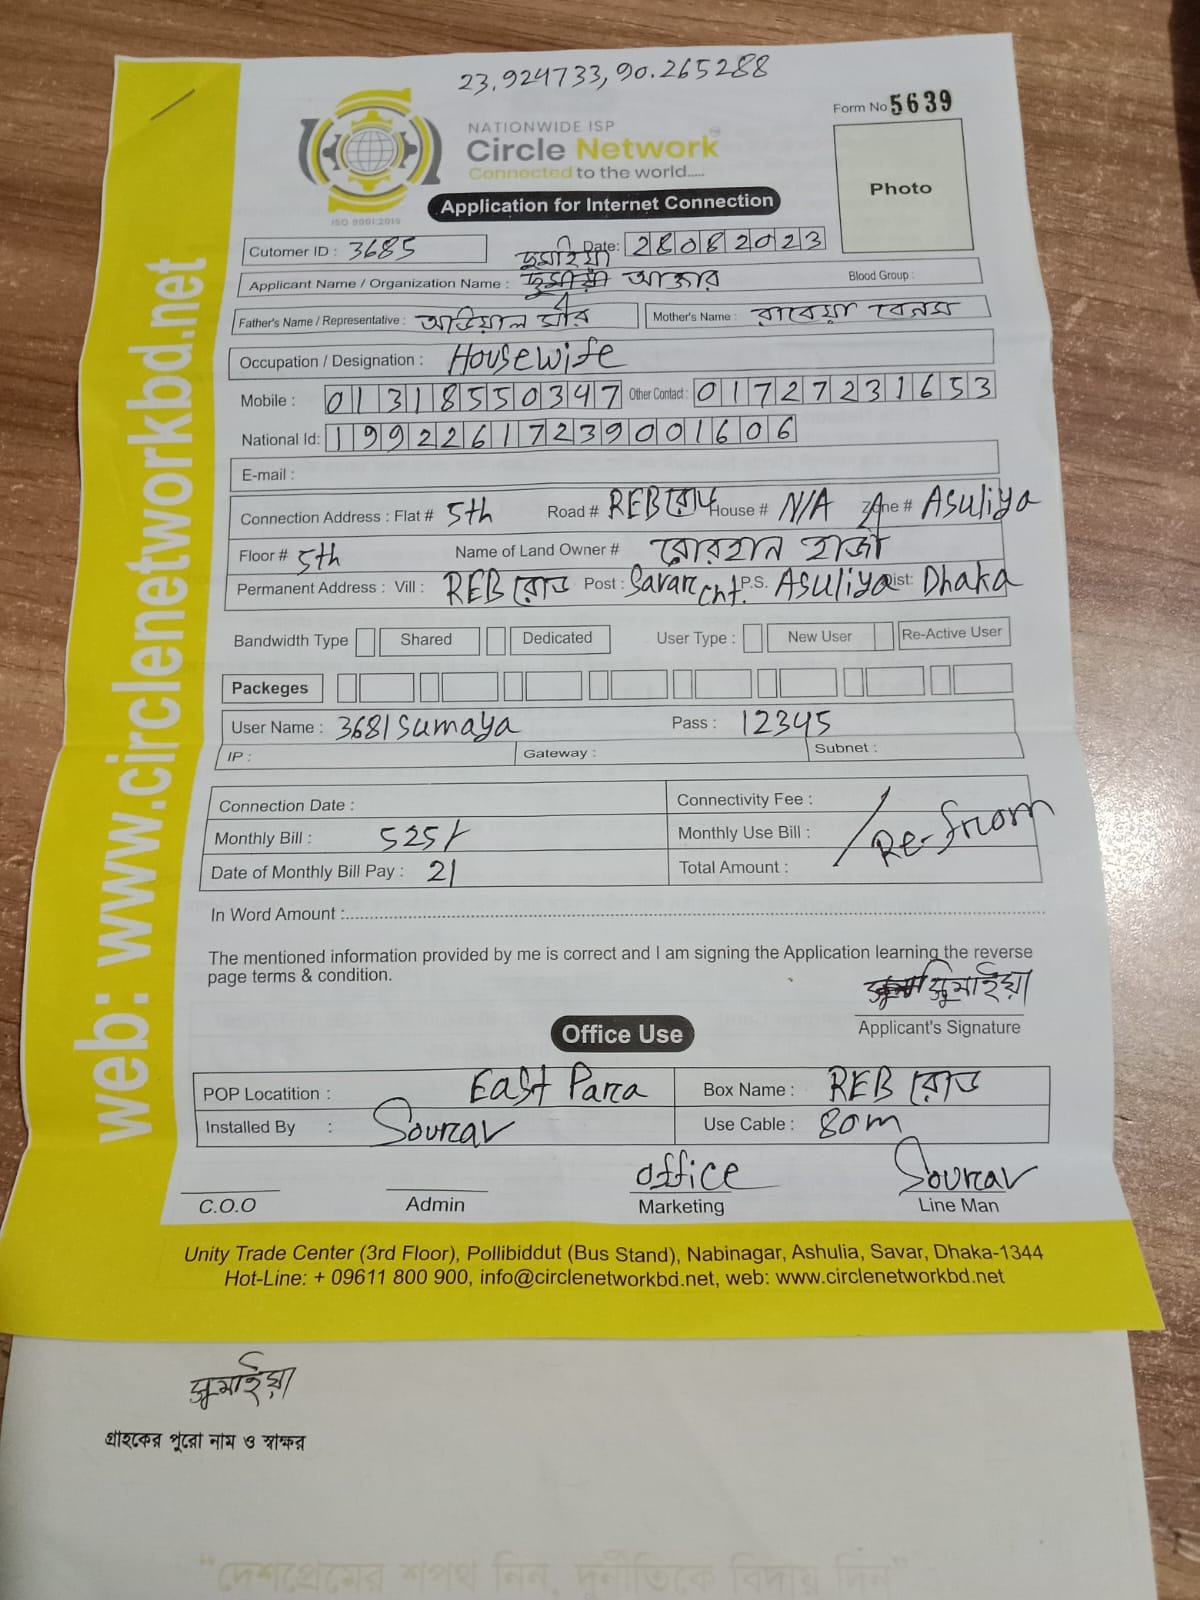 23.924733, 90.265288
Form No 5639
NATIONWIDE ISP
Circle Network
Connected to the world.....
ISO 9001:2015
Application for Internet Connection
Photo
Cutomer ID : 3685 Date: 28082023
সুমাইয়া
Applicant Name / Organization Name : আক্তার Blood Group :
Father's Name / Representative : Mother's Name : রাবেয়া বেগম
Occupation / Designation : Housewife
Mobile : 01318550347 Other Contact : 01727231653
National Id: 19922617239001606
E-mail :
Connection Address : Flat # 5th Road # REB রোড House # N/A Zone # Asuliya
Floor # 5th Name of Land Owner # বোরহান হাজী
Permanent Address : Vill : REB রোড Post : Savar Cnt. P.S. Asuliya Dist: Dhaka
Bandwidth Type Shared Dedicated User Type : New User Re-Active User
Packeges
User Name : 3681Sumaya Pass : 12345
IP : Gateway : Subnet :
Connection Date : Connectivity Fee :
Monthly Bill : 525/- Monthly Use Bill : Re-from
Date of Monthly Bill Pay : 21 Total Amount :
In Word Amount :
The mentioned information provided by me is correct and I am signing the Application learning the reverse
page terms & condition.
সুমাইয়া
Applicant's Signature
Office Use
POP Locatition : East Para Box Name : REB রোড
Installed By : Sourav Use Cable : 80m
office Sourav
C.O.O Admin Marketing Line Man
Unity Trade Center (3rd Floor), Pollibiddut (Bus Stand), Nabinagar, Ashulia, Savar, Dhaka-1344
Hot-Line: + 09611 800 900, info@circlenetworkbd.net, web: www.circlenetworkbd.net
web: www.circlenetworkbd.net
সুমাইয়া
গ্রাহকের পুরো নাম ও স্বাক্ষর
“দেশপ্রেমের শপথ নিন, দুর্নীতিকে বিদায় দিন”